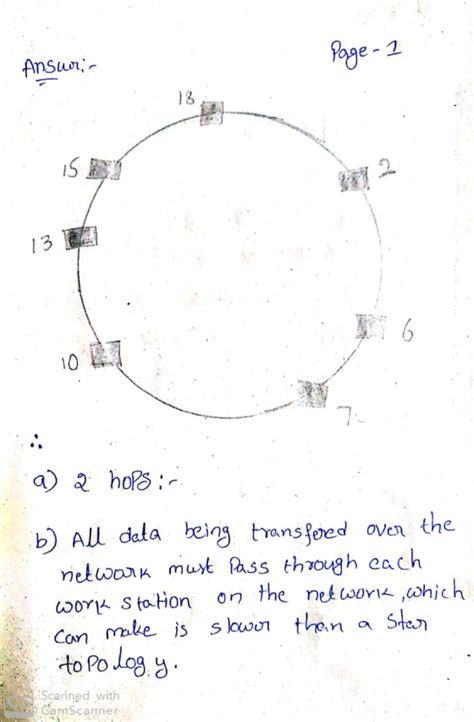 Page - 1
Answr:-
18
15
2
13
6
10
7
∴
a) 2 hops :-
b) All data being transfered over the
network must Pass through each
work station on the network, which
can make is slower than a Star
topology.
Scanned with
CamScanner